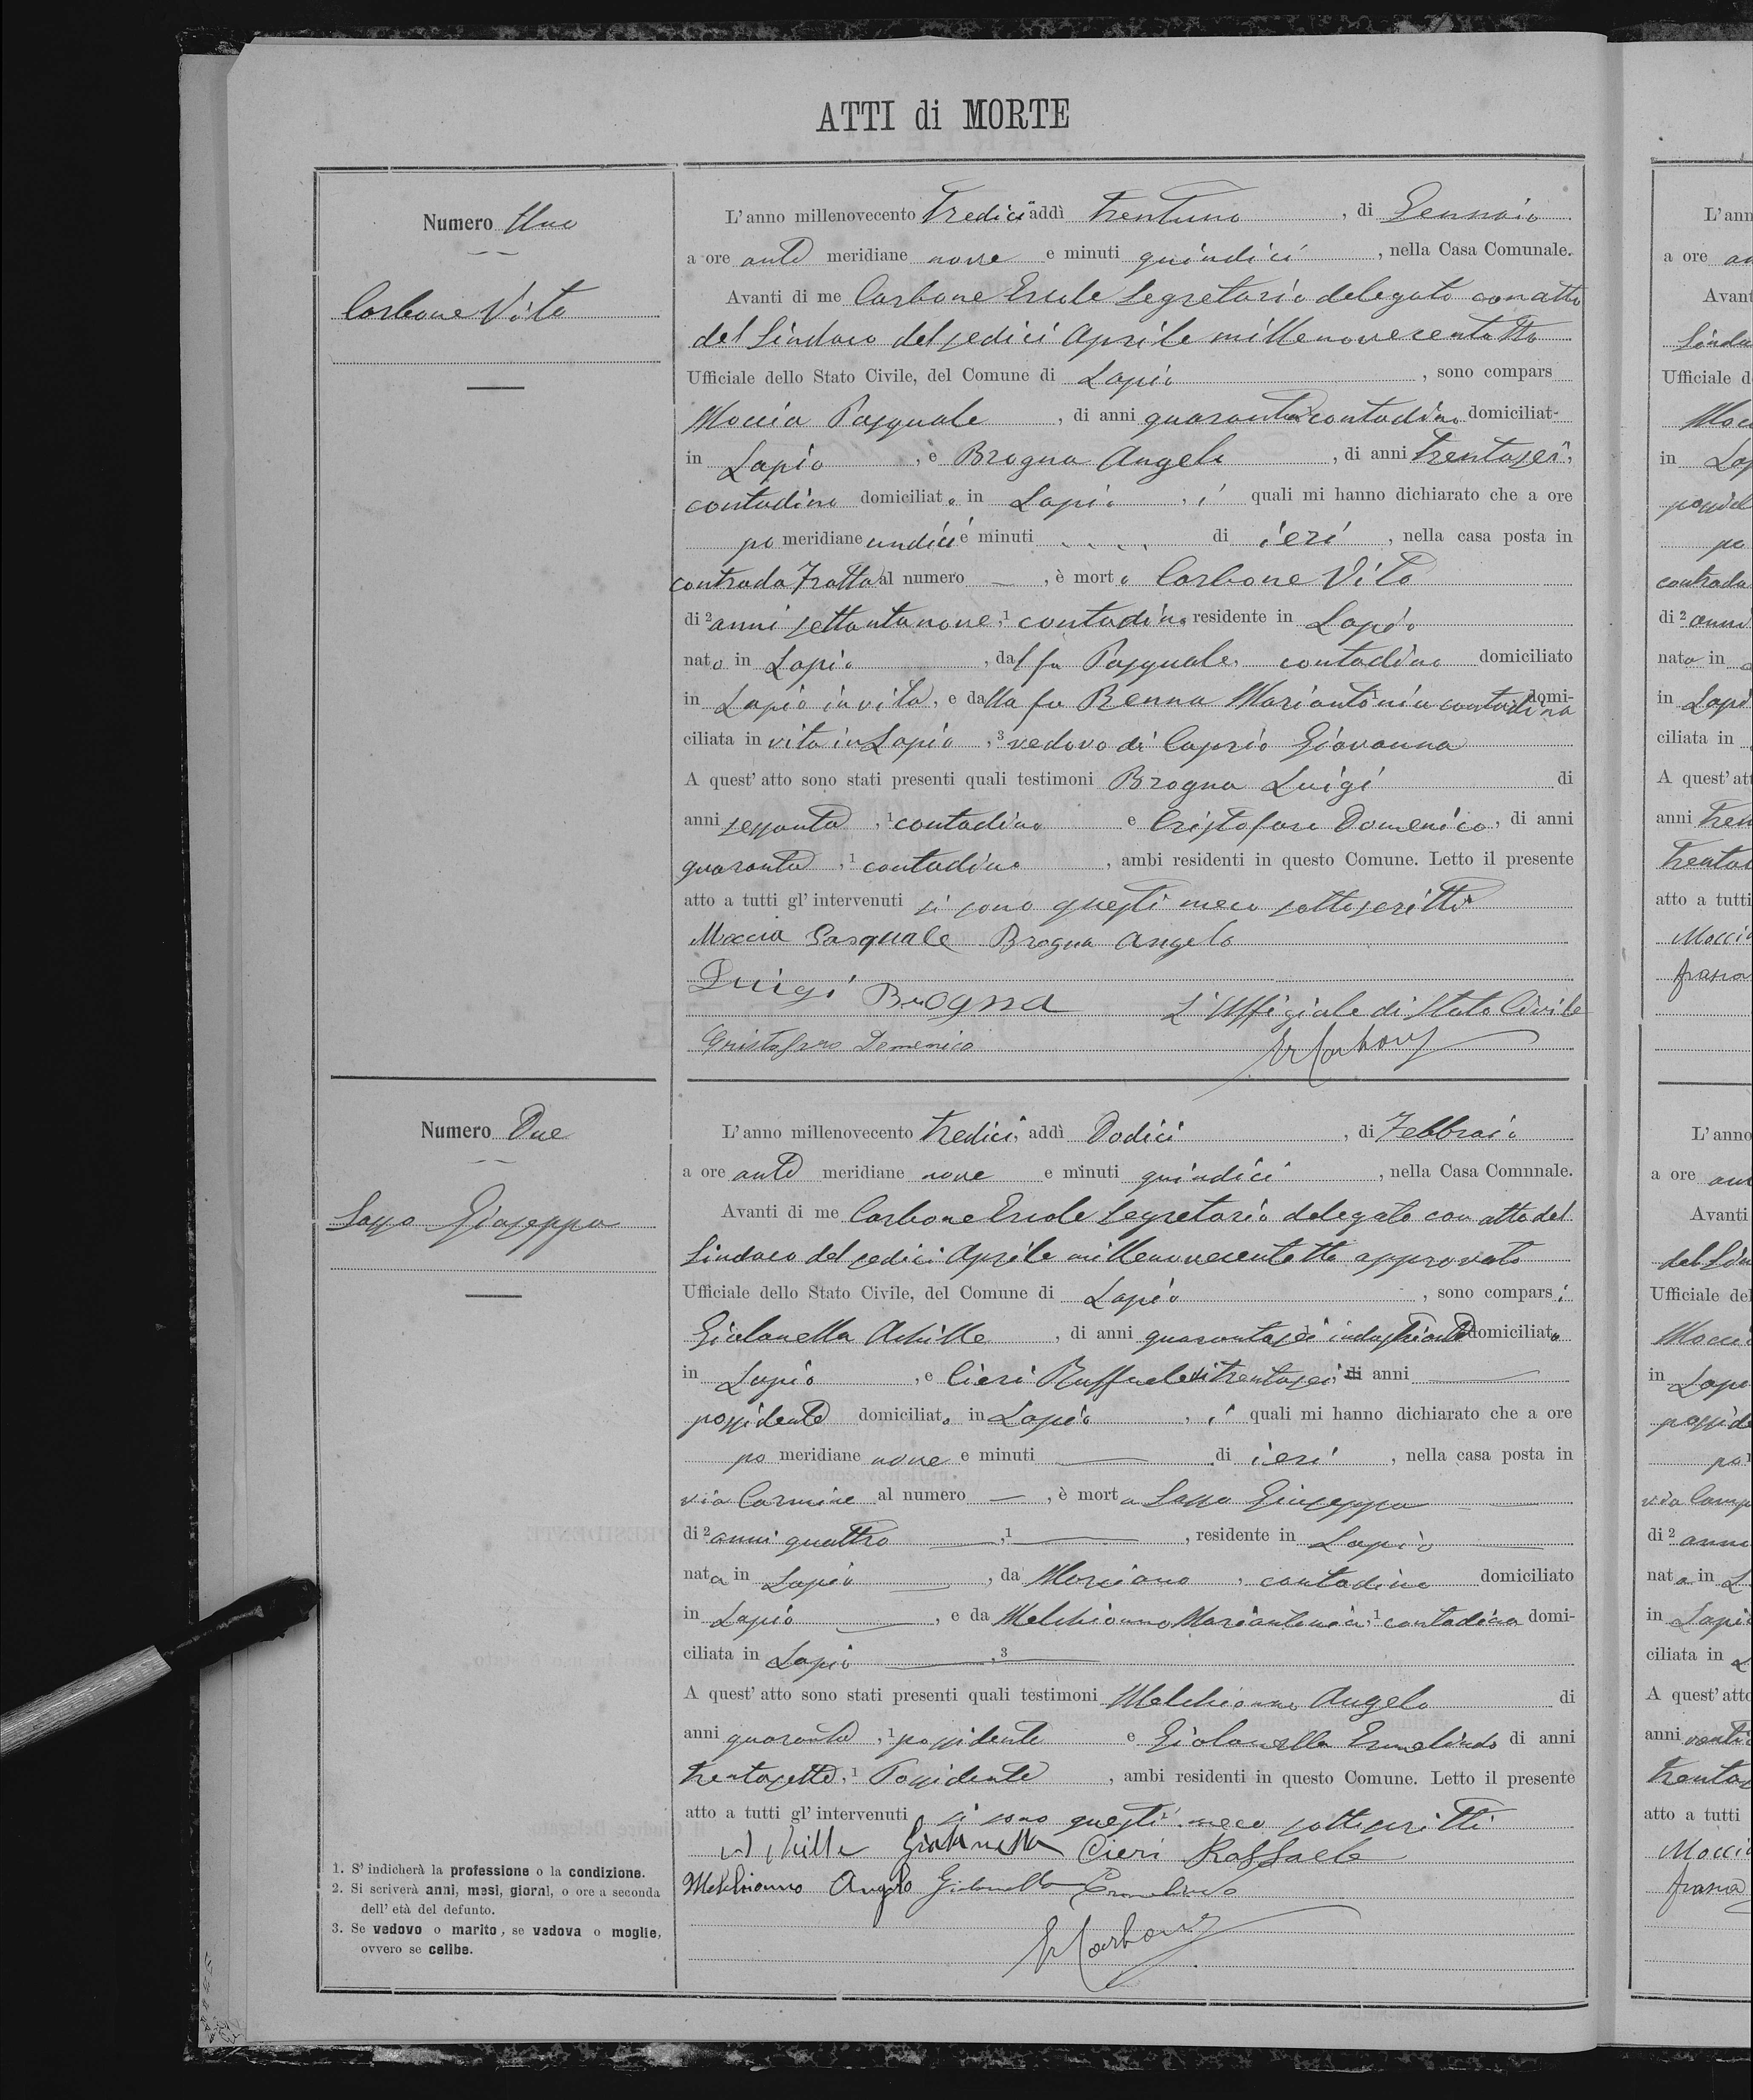 ATTI di MORTE
Numero Uno
Carbone Vito
L'anno millenovecento Tredici addì trentuno, di Gennaio
a ore ante meridiane nove e minuti quindici, nella Casa Comunale.
Avanti di me Carbone Ercole Segretario delegato con atto
del Sindaco del sedici Aprile millenovecentotto
Ufficiale dello Stato Civile, del Comune di Lapio, sono compars
Moccia Pasquale, di anni quaranta contadino domiciliat
in Lapio, e Brogna Angelo, di anni trentasei,
contadino domiciliato in Lapio, i quali mi hanno dichiarato che a ore
po meridiane undici e minuti di ieri, nella casa posta in
contrada Fratta al numero —, è morto Carbone Vito
di 2 anni settantanove, 1 contadino residente in Lapio
nato in Lapio, dal fu Pasquale, contadino domiciliato
in Lapio in vita, e dalla fu Benna Mariantonia 1 contadina domi-
ciliata in vita in Lapio, 3 vedovo di Caprio Giovanna
A quest'atto sono stati presenti quali testimoni Brogna Luigi di
anni sessanta, 1 contadino e Cristofaro Domenico, di anni
quaranta, 1 contadino, ambi residenti in questo Comune. Letto il presente
atto a tutti gl'intervenuti si sono questi meco sottoscritti
Moccia Pasquale Brogna Angelo
Luigi Brogna
L'Uffiziale di Stato Civile
Cristofaro Domenico
Er Carbone
Numero Due
Sasso Giuseppa
L'anno millenovecento tredici, addì Dodici, di Febbraio
a ore ante meridiane nove e minuti quindici, nella Casa Comnnale.
Avanti di me Carbone Ercole Segretario delegato con atto del
Sindaco del sedici Aprile millenovecentotto approvato
Ufficiale dello Stato Civile, del Comune di Lapio, sono comparsi
Giolanella Achille, di anni quarantasei 1 industriante domiciliato
in Lapio, e Cieri Raffaele di trentasei di anni —
possidente domiciliato in Lapio, i quali mi hanno dichiarato che a ore
po meridiane nove e minuti — di ieri, nella casa posta in
via Carmine al numero —, è morta Sasso Giuseppa
di 2 anni quattro —, 1 —, residente in Lapio —
nata in Lapio —, da Marciano, contadino domiciliato
in Lapio —, e da Melchionno Mariantonia, 1 contadina domi-
ciliata in Lapio —, 3 —
A quest'atto sono stati presenti quali testimoni Melchionno Angelo di
anni quaranta, 1 possidente e Giolanella Ermelindo di anni
trentasette, 1 Possidente, ambi residenti in questo Comune. Letto il presente
atto a tutti gl'intervenuti si sono questi meco sottoscritti
Achille Giolanella Cieri Raffaele
Melchionno Angelo Giolanella Ermelindo
Er Carbone
1. S'indicherà la professione o la condizione.
2. Si scriverà anni, mesi, giorni, o ore a seconda
dell'età del defunto.
3. Se vedovo o marito, se vedova o moglie,
ovvero se celibe.
L'ann
a ore an
Avant
Sinda
Ufficiale d
Mocc
in Lap
possid
po
contrada
di 2 anni
nata in
in Lapi
ciliata in
A quest'att
anni tren
trenta
atto a tutti
Moccia
L'anno
a ore an
Avanti
del Sin
Ufficiale del
Mocci
in Lapi
posside
po
via Camp
di 2 anni
nata in L
in Lapi
ciliata in L
A quest'atto
anni venti
trenta
atto a tutti
Moccia